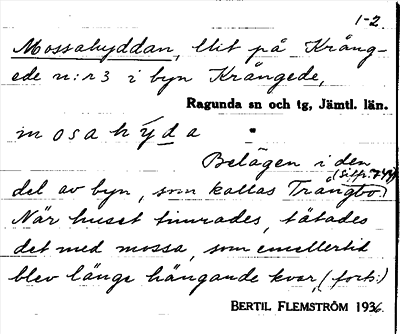 1-2.
Mossahyddan, blit på Krång-
ede n:r 3 i byn Krångede,
Ragunda sn och tg, Jämtl. län.
mosahýda
Belägen i den
del av byn, som kallas Trångbo.)
När huset timrades, tätades
det med mossa, som emellertid
blev länge hängande kvar, (forts:)
BERTIL FLEMSTRÖM 1936.